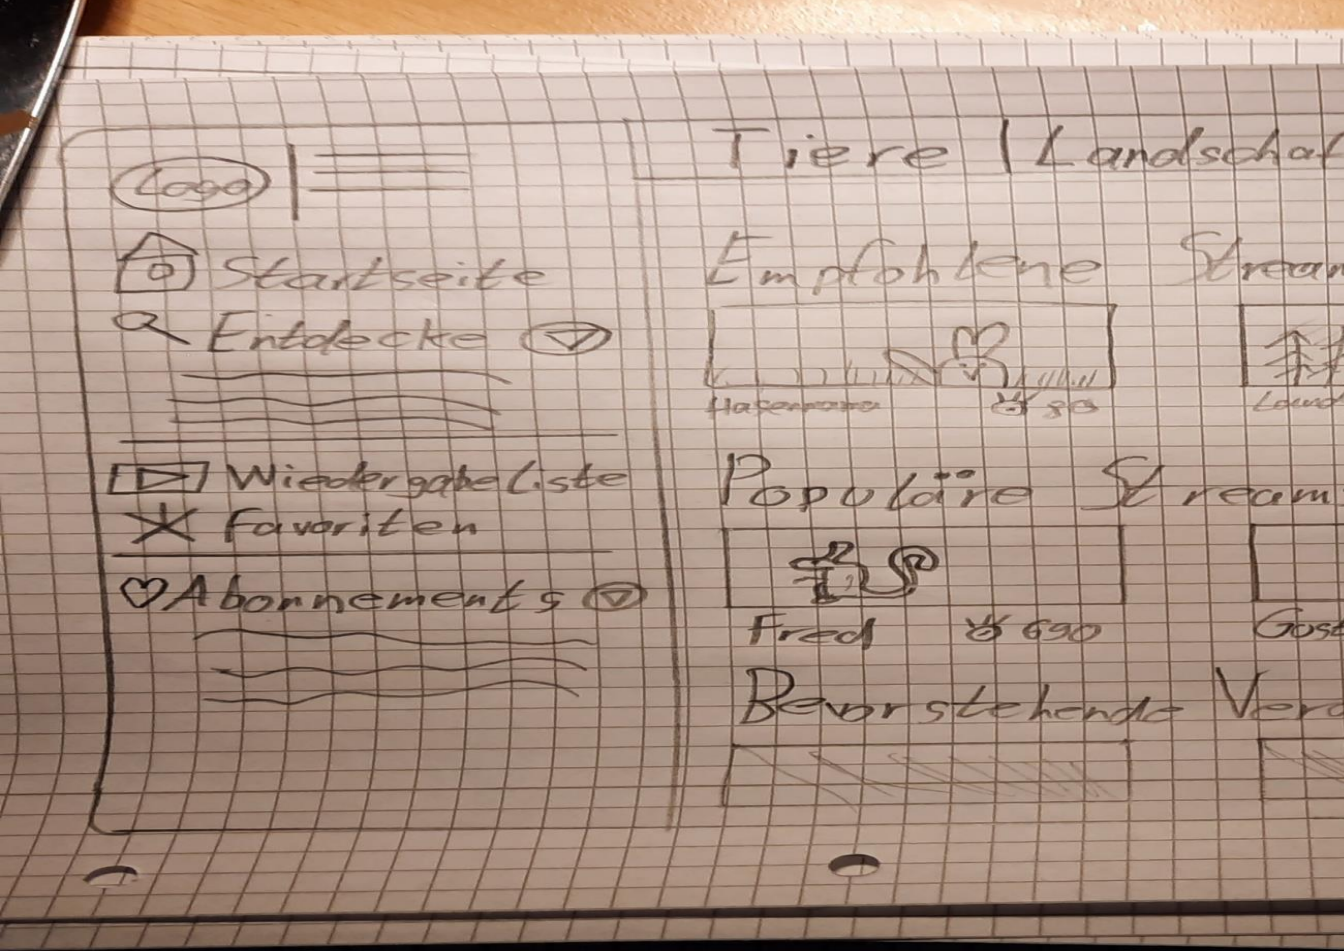 Logo
Startseite
Entdecke
Wiedergabeliste
Favoriten
Abonnements
Tiere | Landschaf
Empfohlene Stream
80
Populäre Stream
Fred 690
Bevorstehende Vera